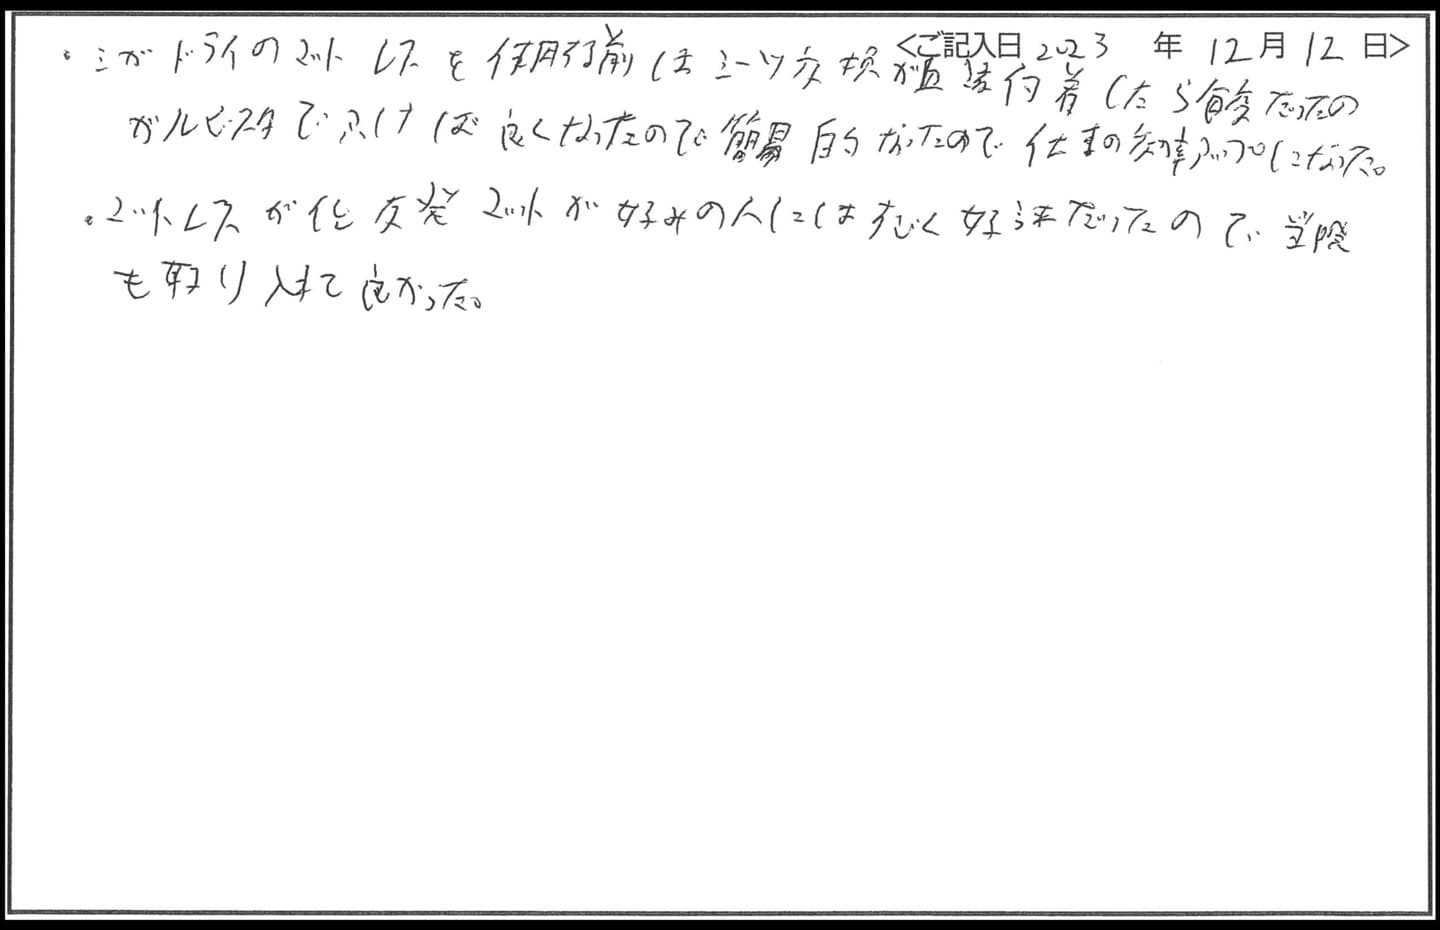 <ご記入日 2023 年 12月 12 日>
・ミガドライのマットレスを使用する前はシーツ交換が直接付着したら大変だったの
がルビスタでふけば良くなったので簡易的なったので仕事の効率アップになった。
・マットレスが低反発マットが好みの人にはすごく好評だったので当院
も取り入れて良かった。